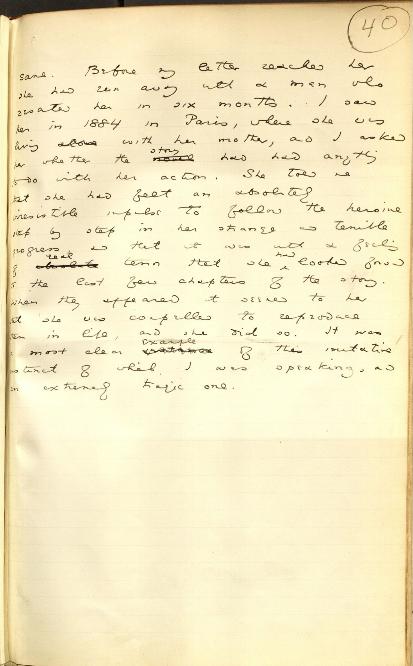 40
same. Before my letter reached her
she had run away with a man who
deserted her in six months. I saw
her in 1884 in Paris, where she was
living alone with her mother, and I asked
her whether the story novel had had anything
to do with her action. She told me
that she had felt an absolutely
irresistible impulse to follow the heroine
step by step in her strange and terrible
progress, and that it was with a feeling
of real absolute terror that she had looked forward
to the last few chapters of the story.
When they appeared it seemed to her
that she was compelled to reproduce
them in life, and she did so. It was
a most clear example instance of this imitative
instinct of which I was speaking, and
an extremely tragic one.